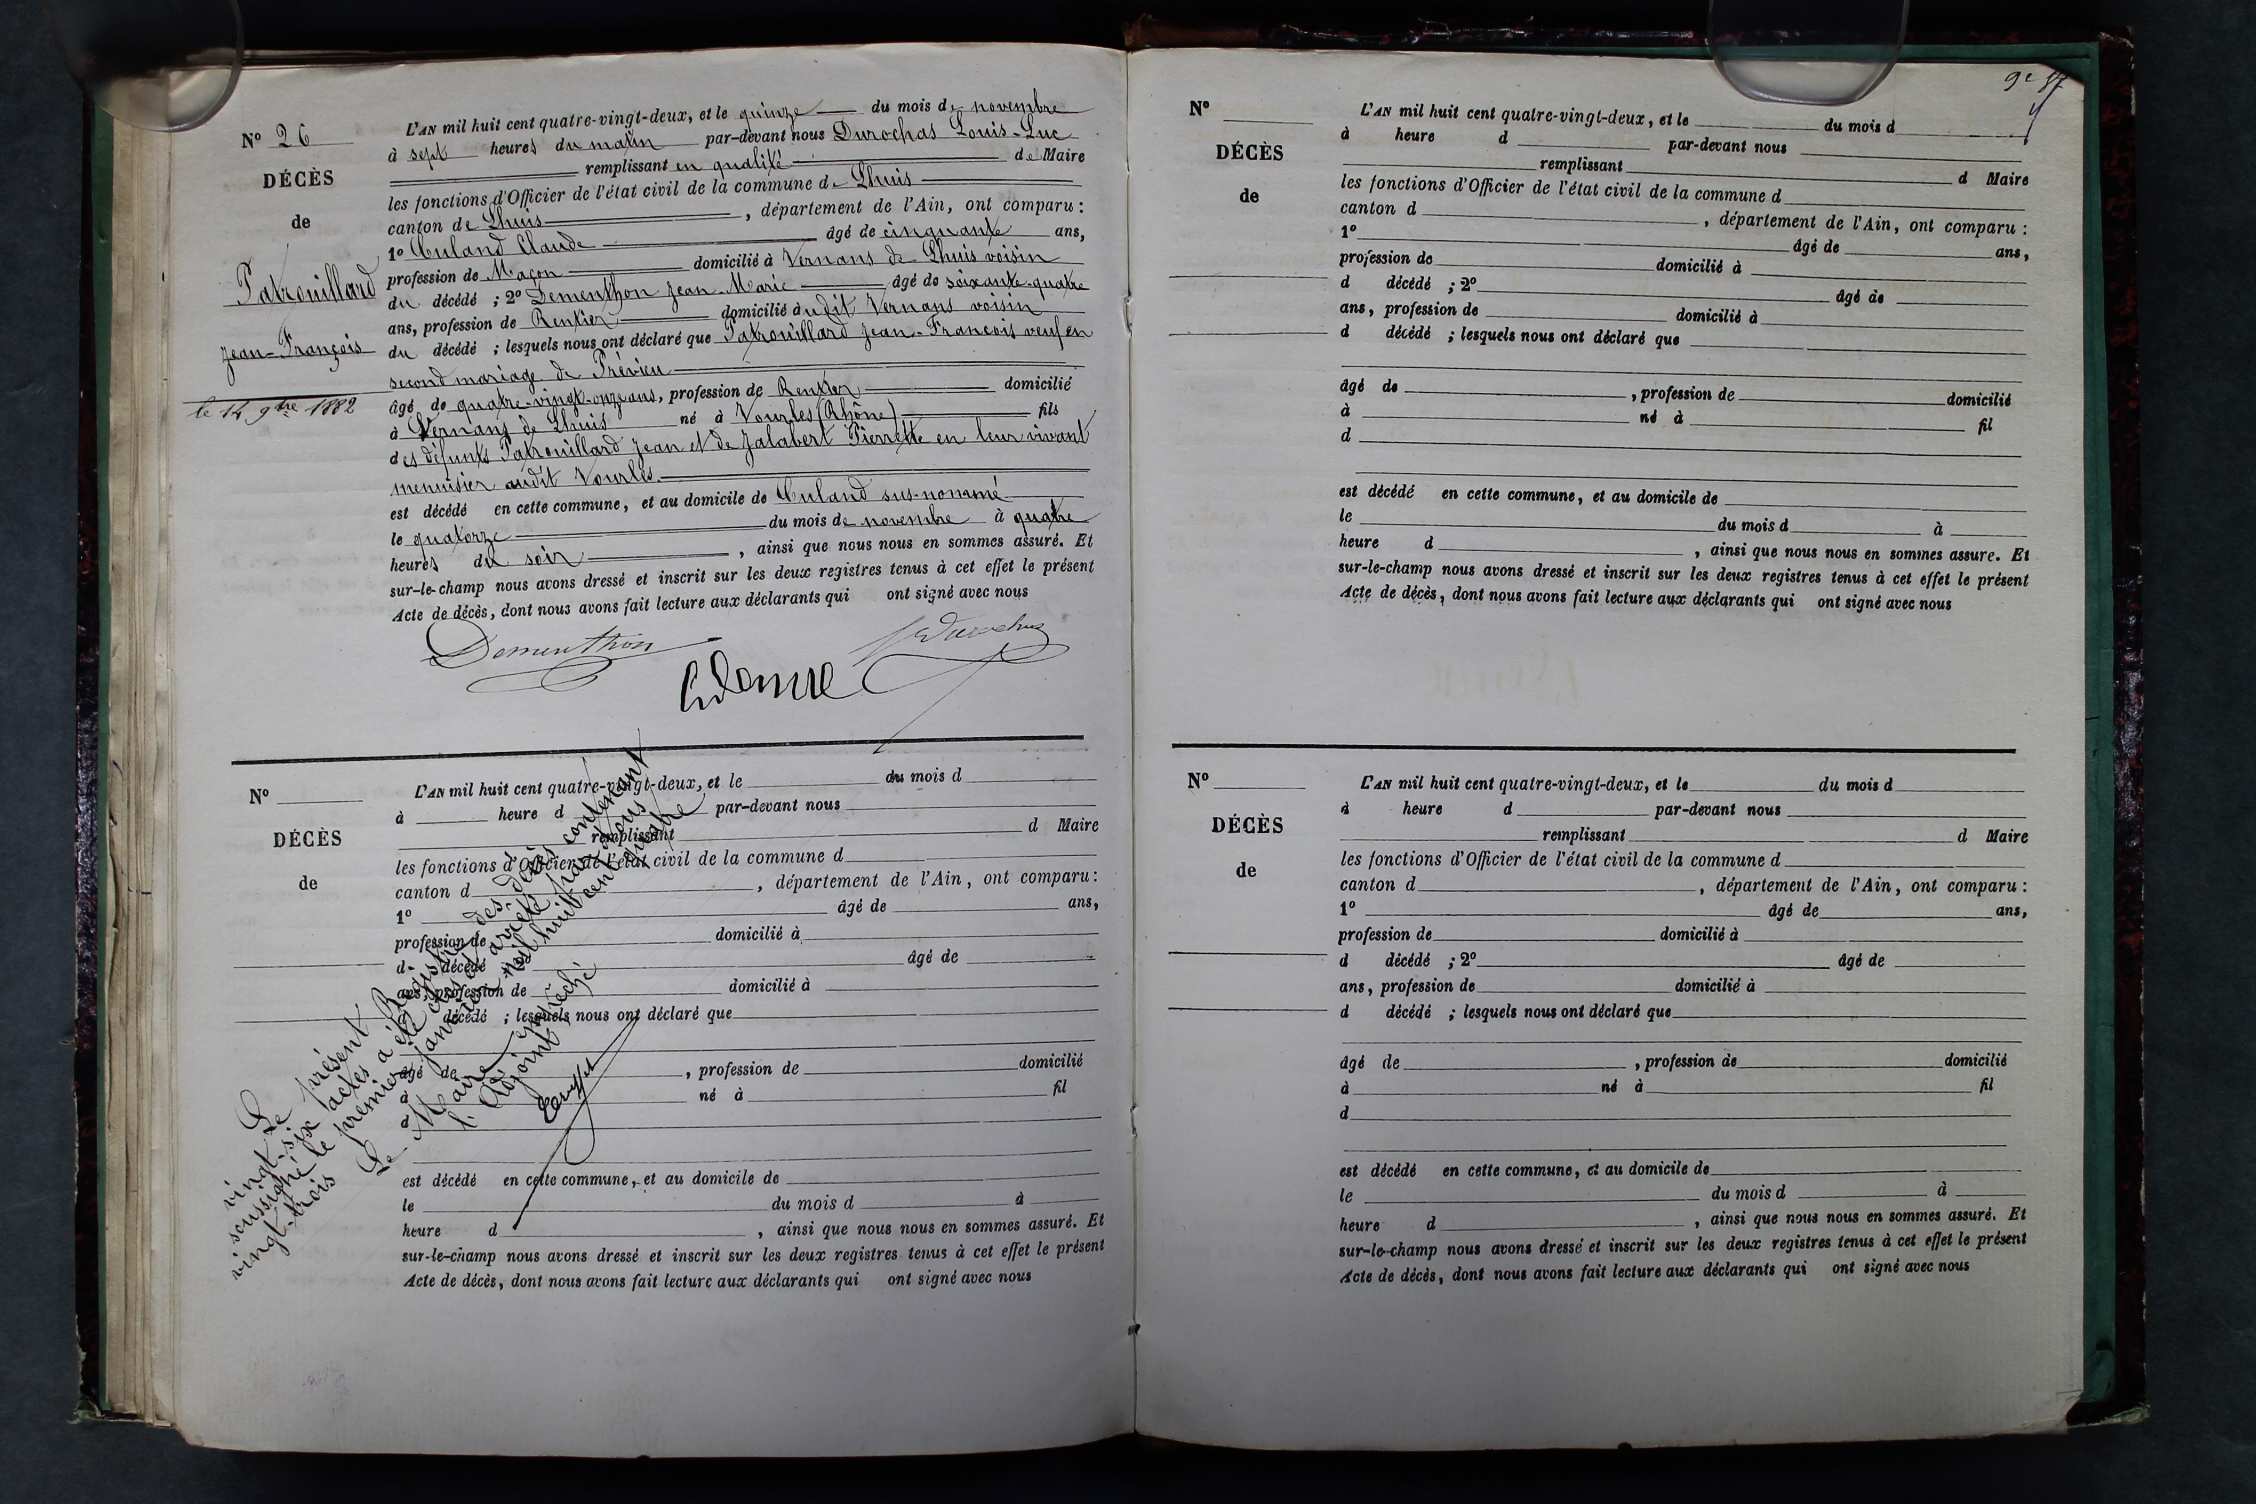 N° 26
DÉCÈS
de
Patrouillard
Jean-François
le 14 9bre 1882
L'AN mil huit cent quatre-vingt-deux, et le quinze du mois de novembre
à sept heures du matin par-devant nous Durochas Louis-Luc
remplissant en qualité de Maire
les fonctions d'Officier de l'état civil de la commune de Lhuis
canton de Lhuis, département de l'Ain, ont comparu:
1° Culand Claude âgé de cinquante ans,
profession de Maçon domicilié à Vernans de Lhuis voisin
du décédé ; 2° Dementhon Jean-Marie âgé de soixante-quatre
ans, profession de Rentier domicilié audit Vernans voisin
du décédé ; lesquels nous ont déclaré que Patrouillard Jean-François veuf en
second mariage de Prévieu
âgé de quatre-vingt-onze ans, profession de Rentier domicilié
à Vernans de Lhuis né à Vourles (Rhône) fils
des défunts Patrouillard Jean et de Jalabert Pierrette en leur vivant
menuisier audit Vourles.
est décédé en cette commune, et au domicile de Culand sus-nommé
le quatorze du mois de novembre à quatre
heures du soir, ainsi que nous nous en sommes assuré. Et
sur-le-champ nous avons dressé et inscrit sur les deux registres tenus à cet effet le présent
Acte de décès, dont nous avons fait lecture aux déclarants qui ont signé avec nous
Dementhon
Durochas
N°
DÉCÈS
de
L'AN mil huit cent quatre-vingt-deux, et le du mois d
à heure d par-devant nous
remplissant d Maire
les fonctions d'Officier de l'état civil de la commune d
canton d , département de l'Ain, ont comparu:
1° âgé de ans,
profession de domicilié à
d décédé ; 2° âgé de
ans, profession de domicilié à
d décédé ; lesquels nous ont déclaré que
âgé de , profession de domicilié
à né à fil
d
est décédé en cette commune, et au domicile de
le du mois d à
heure d , ainsi que nous nous en sommes assuré. Et
sur-le-champ nous avons dressé et inscrit sur les deux registres tenus à cet effet le présent
Acte de décès, dont nous avons fait lecture aux déclarants qui ont signé avec nous
Le présent Registre des décès contenant
vingt-six actes a été clos et arrêté par nous
soussigné le premier janvier mil huit cent quatre
vingt-trois
Le Maire empêché
l'Adjoint
9e
N°
DÉCÈS
de
L'AN mil huit cent quatre-vingt-deux, et le du mois d
à heure d par-devant nous
remplissant d Maire
les fonctions d'Officier de l'état civil de la commune d
canton d , département de l'Ain, ont comparu :
1° âgé de ans,
profession de domicilié à
d décédé ; 2° âgé de
ans, profession de domicilié à
d décédé ; lesquels nous ont déclaré que
âgé de , profession de domicilié
à né à fil
d
est décédé en cette commune, et au domicile de
le du mois d à
heure d , ainsi que nous nous en sommes assuré. Et
sur-le-champ nous avons dressé et inscrit sur les deux registres tenus à cet effet le présent
Acte de décès, dont nous avons fait lecture aux déclarants qui ont signé avec nous
N°
DÉCÈS
de
L'AN mil huit cent quatre-vingt-deux, et le du mois d
à heure d par-devant nous
remplissant d Maire
les fonctions d'Officier de l'état civil de la commune d
canton d , département de l'Ain, ont comparu :
1° âgé de ans,
profession de domicilié à
d décédé ; 2° âgé de
ans, profession de domicilié à
d décédé ; lesquels nous ont déclaré que
âgé de , profession de domicilié
à né à fil
d
est décédé en cette commune, et au domicile de
le du mois d à
heure d , ainsi que nous nous en sommes assuré. Et
sur-le-champ nous avons dressé et inscrit sur les deux registres tenus à cet effet le présent
Acte de décès, dont nous avons fait lecture aux déclarants qui ont signé avec nous